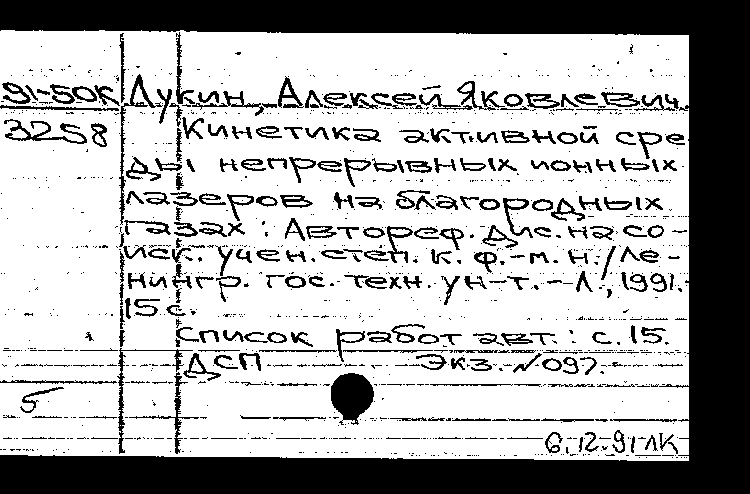 91-50К Лукин, Алексей Яковлевич.
3258 Кинетика активной сре-
ды непрерывных ионных
лазеров на благородных
газах : Автореф. дис. на со-
иск. учен. степ. к. ф.-м. н. / Ле-
нингр. гос. техн. ун-т. - Л., 1991.-
15 с.
Список работ авт. : с. 15.
ДСП Экз. №097.
5
6.12.91 ЛК